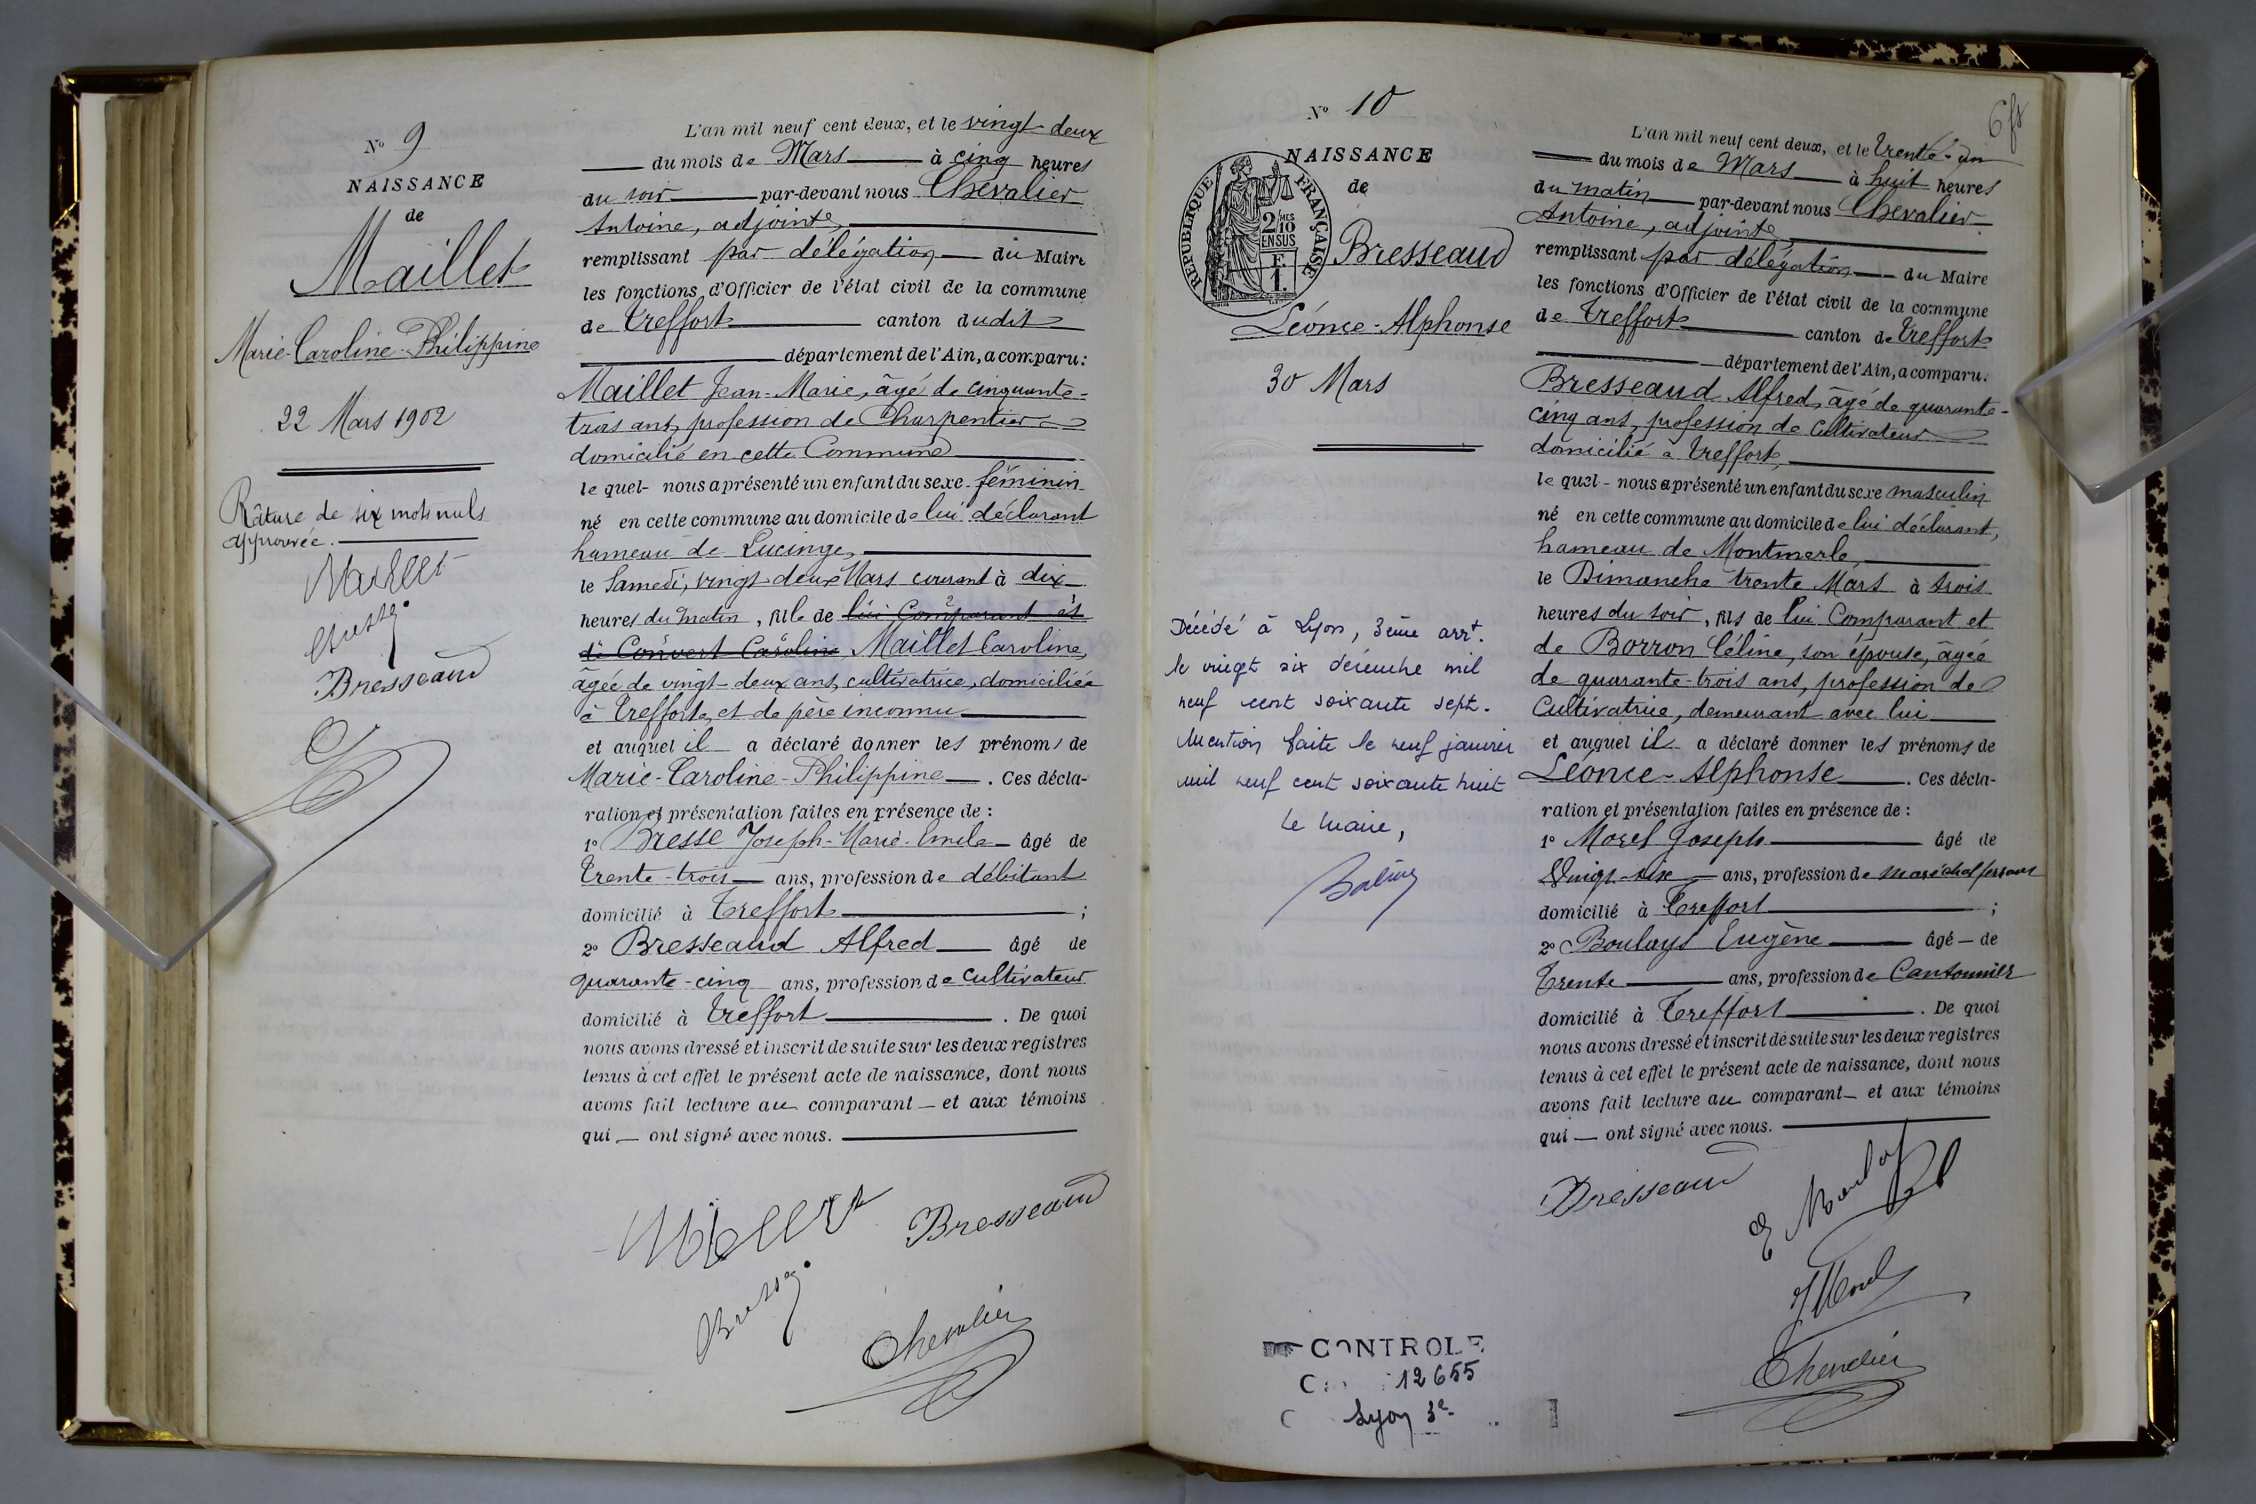 N° 9
NAISSANCE
de
Maillet
Marie-Caroline-Philippine
22 Mars 1902
Râture de six mots nuls
approuvée.
Maillet
Bresse
Bresseaud
L'an mil neuf cent deux, et le vingt-deux
du mois de Mars à cinq heures
du soir par-devant nous Chevalier
Antoine, adjoint,
remplissant par délégation du Maire
les fonctions d'Officier de l'état civil de la commune
de Treffort canton dudit
département de l'Ain, a comparu:
Maillet Jean-Marie, âgé de cinquante-
trois ans, profession de Charpentier
domicilié en cette Commune
lequel nous a présenté un enfant du sexe féminin
né en cette commune au domicile de lui déclarant
hameau de Lucinge,
le Samedi, vingt-deux Mars courant à dix
heures du matin, fille de lui Comparant et
de Convert Caroline Maillet Caroline,
agée de vingt-deux ans, cultivatrice, domiciliée
à Treffort, et de père inconnu
et auquel il a déclaré donner les prénoms de
Marie-Caroline-Philippine. Ces décla-
ration et présentation faites en présence de :
1° Bresse Joseph-Marie-Emile âgé de
Trente-trois ans, profession de débitant
domicilié à Treffort ;
2° Bresseaud Alfred âgé de
quarante-cinq ans, profession de cultivateur
domicilié à Treffort. De quoi
nous avons dressé et inscrit de suite sur les deux registres
tenus à cet effet le présent acte de naissance, dont nous
avons fait lecture au comparant et aux témoins
qui ont signé avec nous.
Maillet
Bresseaud
Bresse
Chevalier
N° 10
NAISSANCE
de
REPUBLIQUE FRANÇAISE
2/10
EN SUS
F.
1.
Bresseaud
Léonce-Alphonse
30 Mars
Décédé à Lyon, 3ème arrt.
le vingt six décembre mil
neuf cent soixante sept.
Mention faite le neuf janvier
mil neuf cent soixante huit
Le Maire,
CONTROLE
12655
Lyon 3e
6 ft
L'an mil neuf cent deux, et le trente-un
du mois de Mars à huit heures
du matin par-devant nous Chevalier
Antoine, adjoint,
remplissant par délégation du Maire
les fonctions d'Officier de l'état civil de la commune
de Treffort canton de Treffort
département de l'Ain, a comparu:
Bresseaud Alfred, âgé de quarante-
cinq ans, profession de cultivateur
domicilié à Treffort,
lequel nous a présenté un enfant du sexe masculin
né en cette commune au domicile de lui déclarant,
hameau de Montmerle,
le Dimanche trente Mars à trois
heures du soir, fils de lui Comparant et
de Borron Céline, son épouse, âgée
de quarante-trois ans, profession de
Cultivatrice, demeurant avec lui
et auquel il a déclaré donner les prénoms de
Léonce-Alphonse. Ces décla-
ration et présentation faites en présence de :
1° Morel Joseph âgé de
Vingt-six ans, profession de maréchal ferrant
domicilié à Treffort ;
2° Boulays Eugène âgé de
Trente ans, profession de Cantonnier
domicilié à Treffort. De quoi
nous avons dressé et inscrit de suite sur les deux registres
tenus à cet effet le présent acte de naissance, dont nous
avons fait lecture au comparant et aux témoins
qui ont signé avec nous.
Bresseaud
J Morel
Chevalier